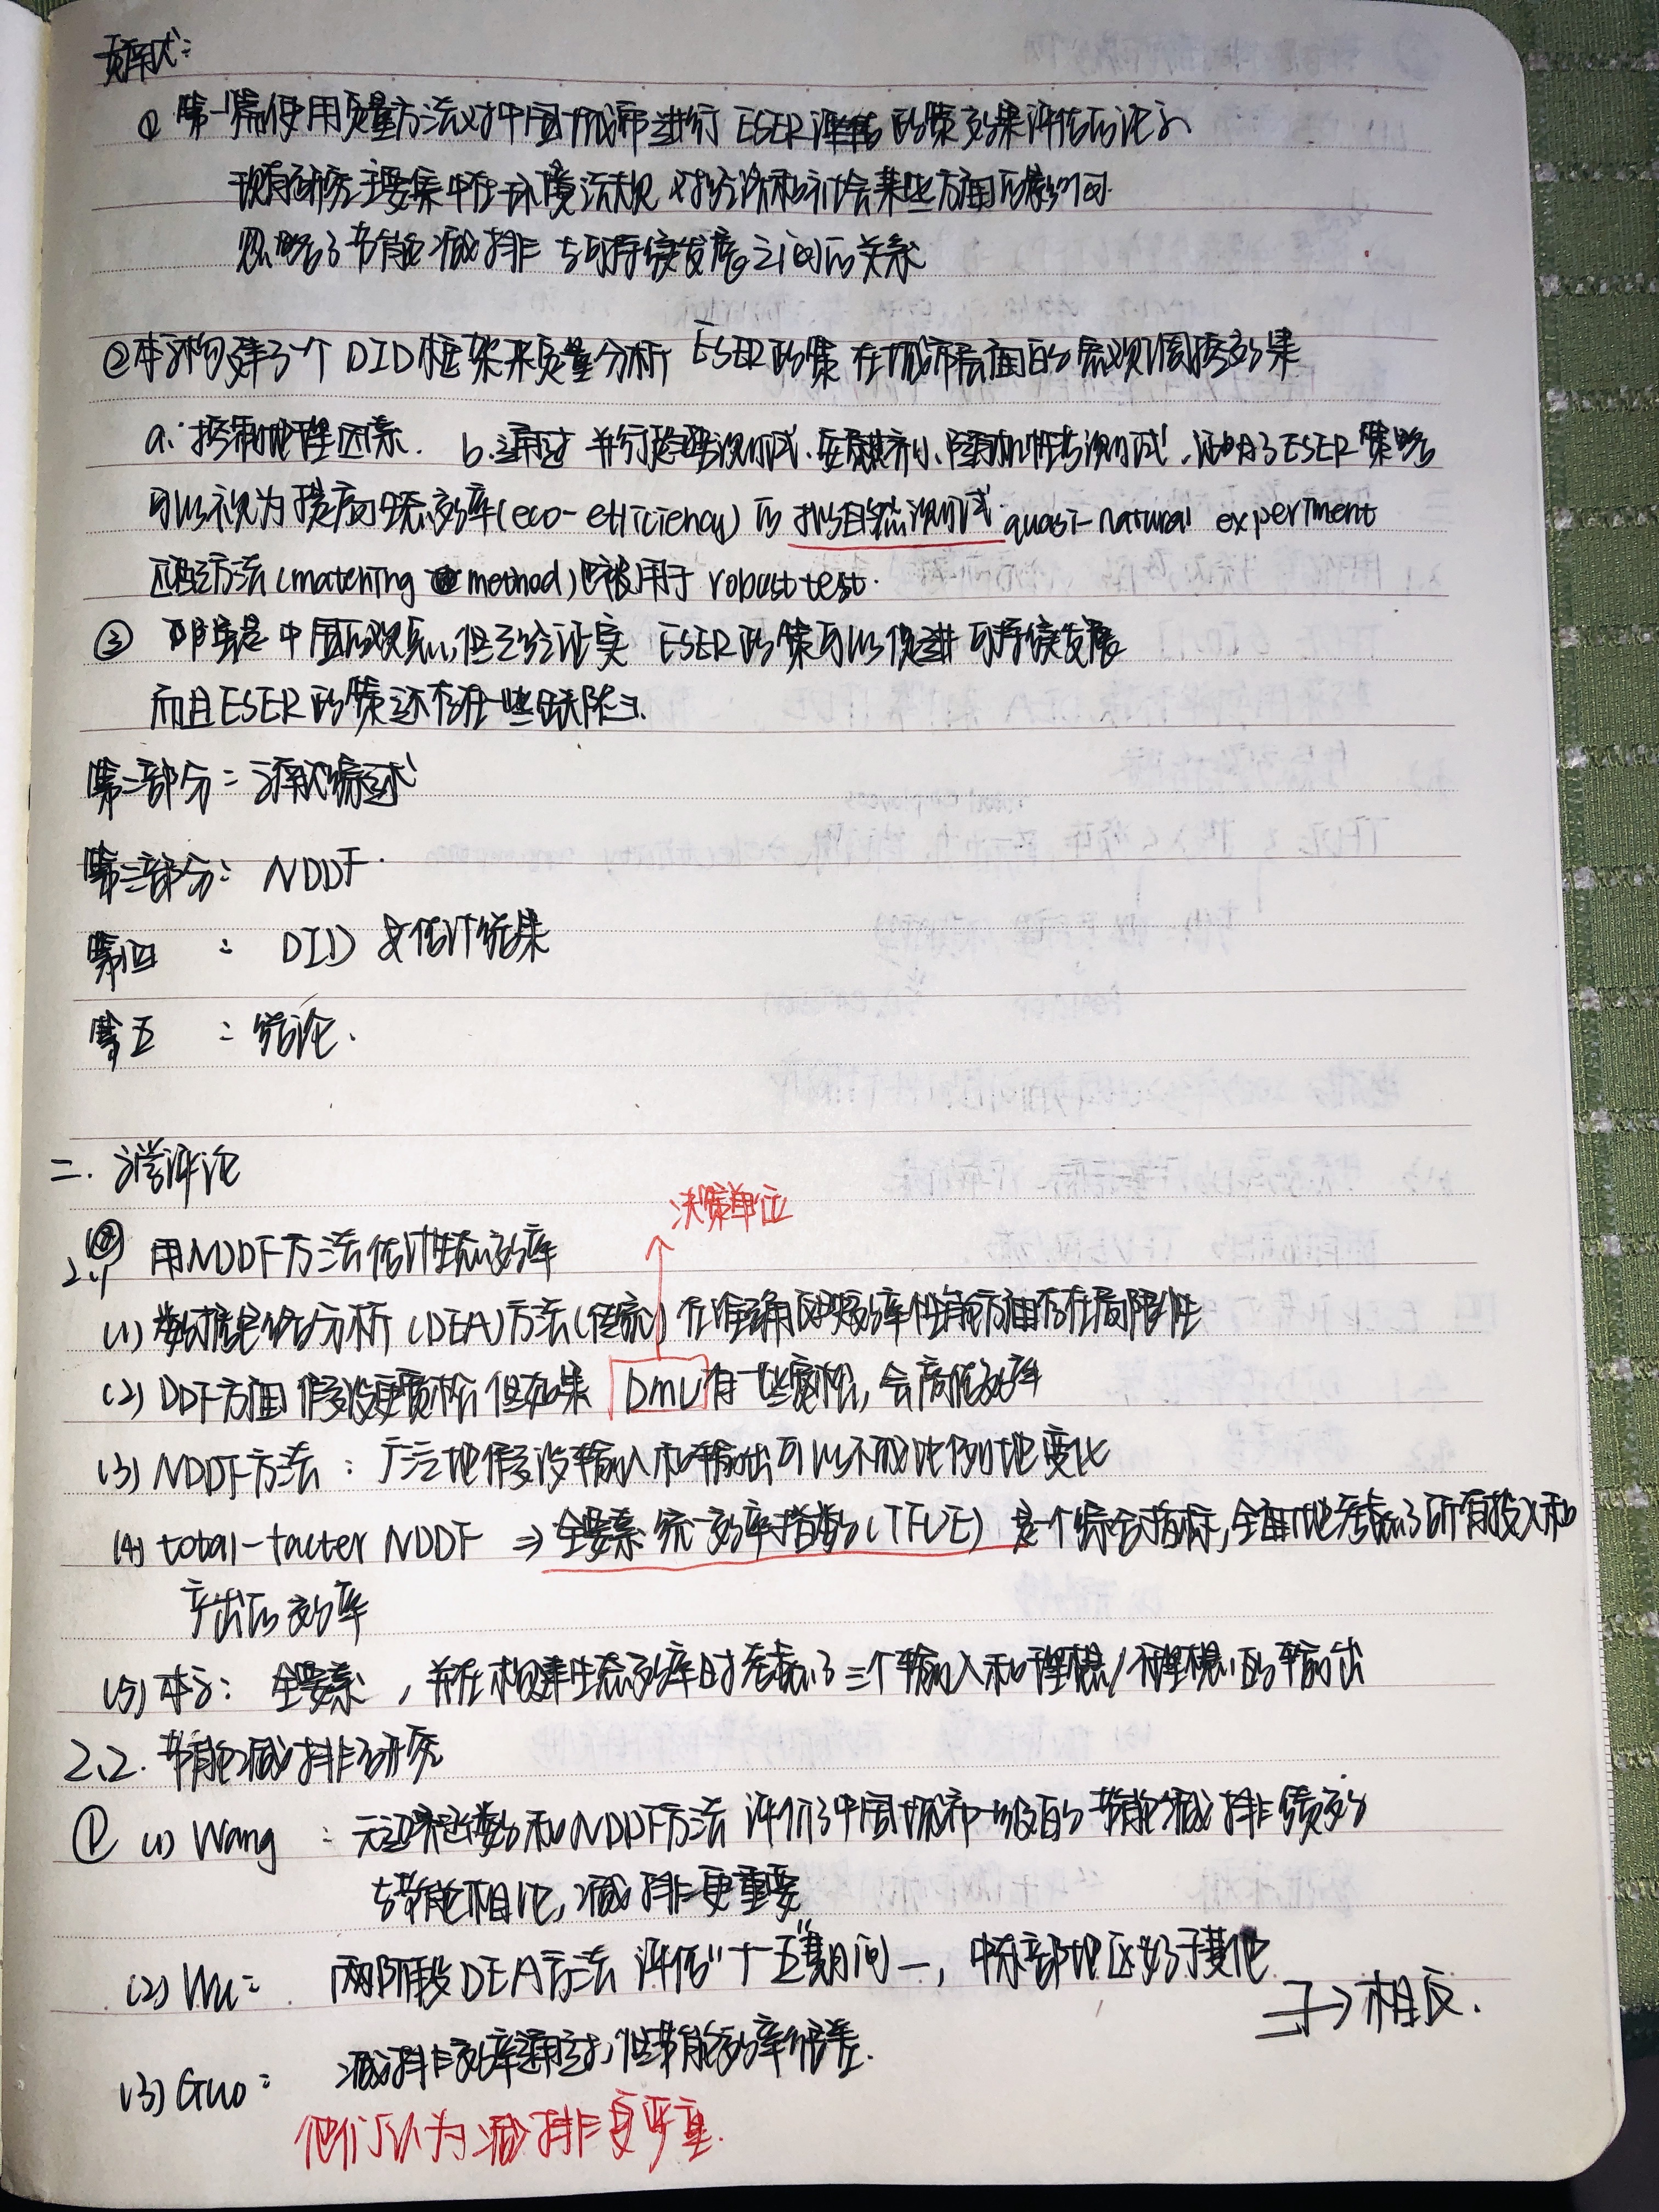 贡献:
① 第一篇使用质量方法对中国城市进行 ESER 政策效果评估的论文
现有研究主要集中在环境法规对经济和社会某些方面的影响
忽略了节能减排与可持续发展之间的关系
②本文构建了个 DID 框架来质量分析 ESER政策在城市层面的宏观调控效果
a. 控制地理因素. b.通过 并行趋势测试、安慰剂、随机性等测试,证明了ESER策略
可以视为提高生态效率(eco-efficiency)的拟自然测试 quasi-natural experiment
匹配方法(matching method)也被用于 robust test.
③ 即使是中国的观点,但已经证实 ESER政策可以促进可持续发展
而且ESER政策还存在一些缺陷.
第二部分: 文献综述
第三部分: NDDF.
第四 : DID 及估计结果
第五 : 结论.
二. 文学评论
决策单位
2.1 用NDDF方法估计生态效率
(1) 数据包络分析 (DEA)方法(传统)在准确反映效率性能方面存在局限性
(2) DDF方面 假设更宽松 但如果 DMU有一些宽松, 会高估效率
(3) NDDF方法: 广泛地假设输入和输出可以不成比例地变化
(4) total-facter NDDF ⇒ 全要素统一效率指数(TFUE) 是一个综合指标,全面地考虑了所有投入和
产出的效率
(5) 本文: 全要素 ,并在构建生态效率时考虑了三个输入和理想/不理想的输出
2.2. 节能减排研究
① (1) Wang : 元边界函数和NDDF方法 评价了中国城市一级的节能减排绩效
与节能相比, 减排更重要
(2) Wu: 两阶段DEA方法 评估"十一五"期间—, 中东部地区好于其他
→相反.
(3) Guo: 减排效率通过,但节能效率很差.
他们认为减排更严重.